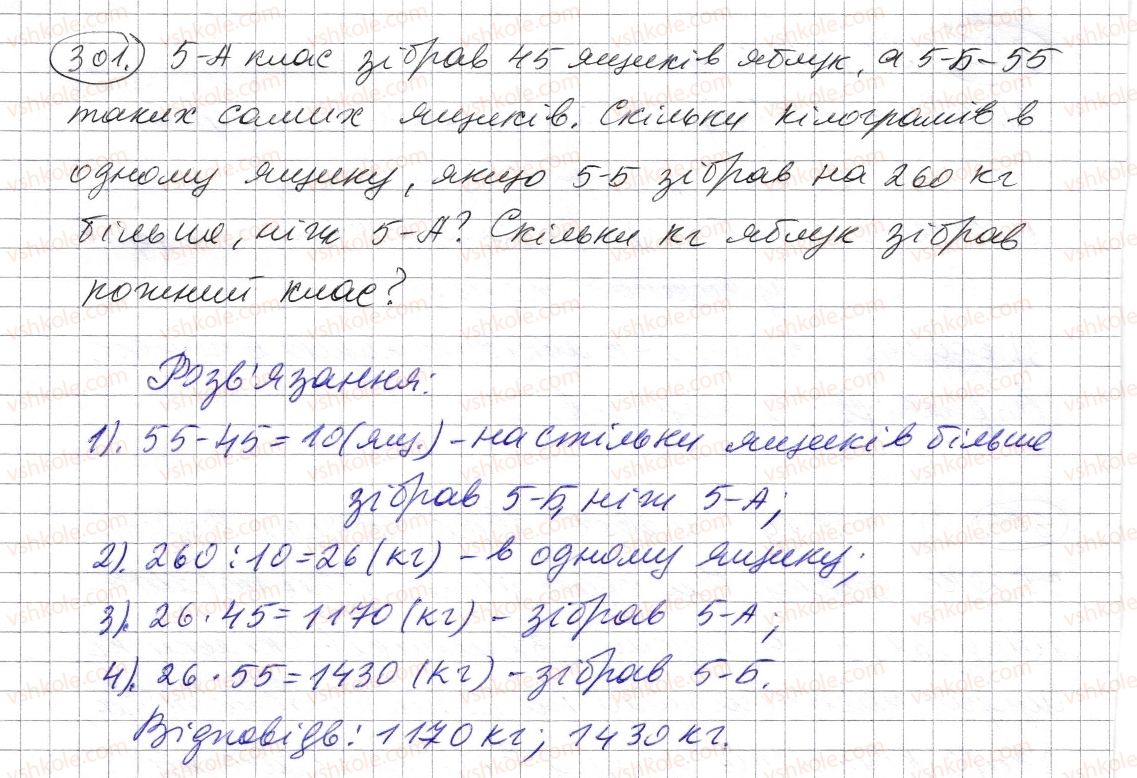 301. 5-А клас зібрав 45 ящиків яблук, а 5-Б – 55
таких самих ящиків. Скільки кілограмів в
одному ящику, якщо 5-Б зібрав на 260 кг
більше, ніж 5-А? Скільки кг яблук зібрав
кожний клас?
Розв'язання:
1). 55-45=10(ящ.) – на стільки ящиків більше
зібрав 5-Б, ніж 5-А;
2). 260:10=26(кг) – в одному ящику;
3). 26·45=1170(кг) – зібрав 5-А;
4). 26·55=1430(кг) – зібрав 5-Б.
Відповідь: 1170кг; 1430кг.
vshkole.com